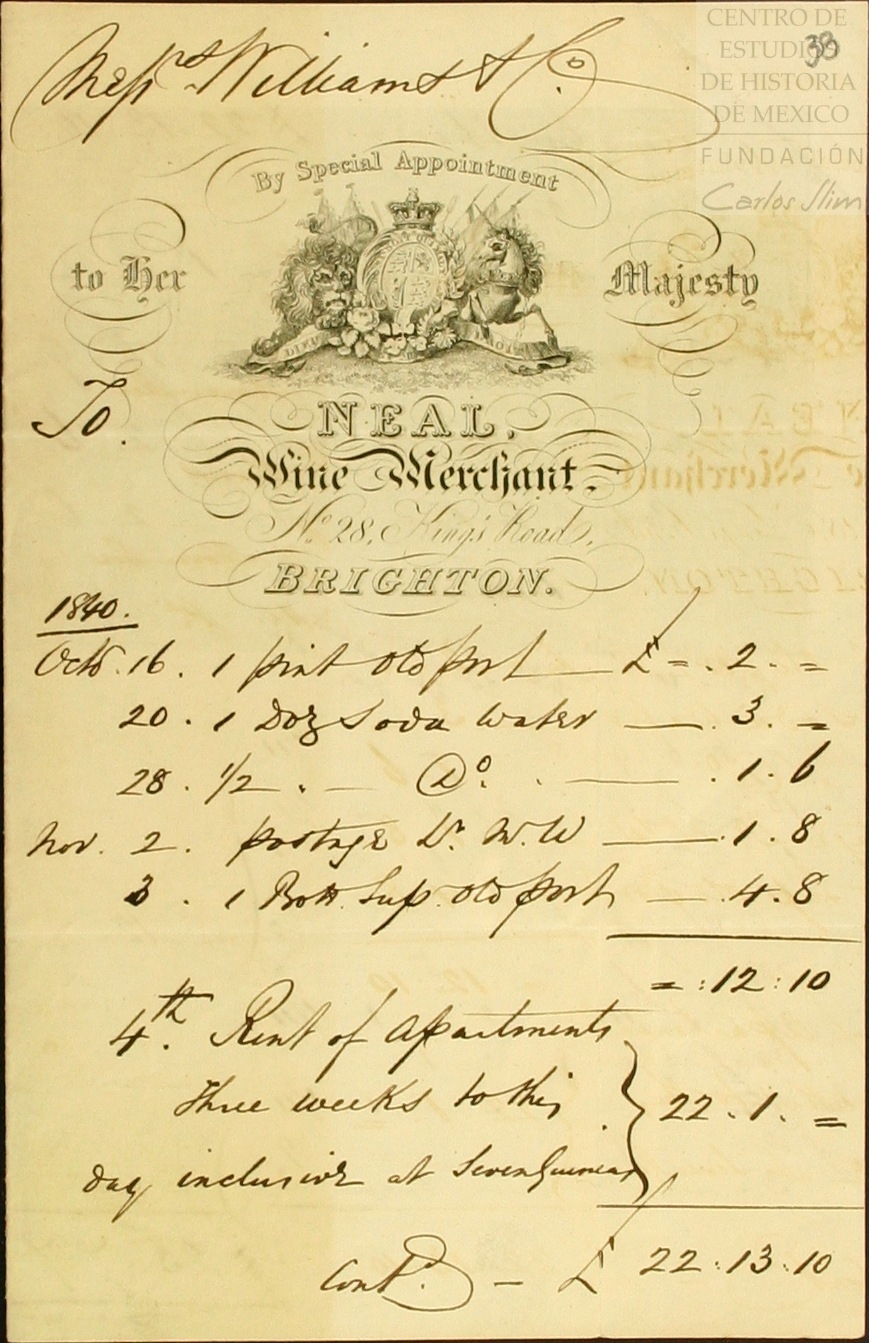 CENTRO DE
ESTUDIOS
DE HISTORIA
DE MEXICO
FUNDACIÓN
Carlos Slim
38
Messrs Williams & Co
By Special Appointment
to Her Majesty
DIEU DROIT
To.
NEAL,
Wine Merchant.
No 28, King's Road,
BRIGHTON.
1840.
Octr. 16. 1 pint old port £ = . 2 . =
20 . 1 Doz Soda Water 3 . =
28 . 1/2 . Do . 1 . 6
Nov. 2 . postage Dr. W.W 1 . 8
3 . 1 Bott. Sup. old port 4 . 8
= : 12 : 10
4th. Rent of Apartments
three weeks to this 22 . 1 . =
day inclusive at Seven Guineas
Contd. £ 22 : 13 . 10